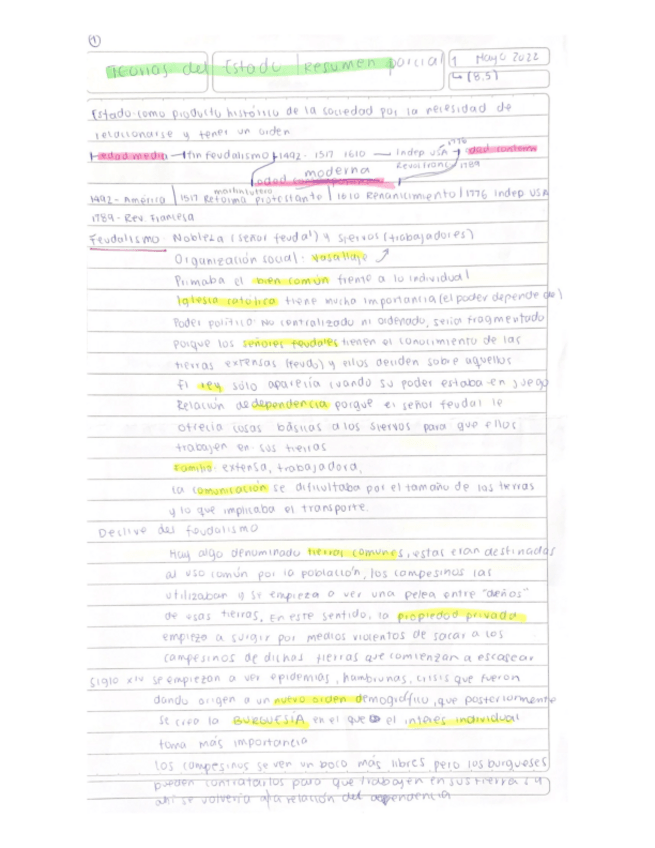 ①
Teorías del Estado | Resumen parcial 1 Mayo 2022
↳ (8.5)
Estado como producto histórico de la sociedad por la necesidad de
relacionarse y tener un orden
edad media fin feudalismo 1492 - 1517 1610 — Indep USA 1776 edad contem
moderna Rev Franc 1789
edad
1492 - América | 1517 Reforma protestante martin lutero | 1610 Renancimiento | 1776 Indep USA
1789 - Rev. Francesa
Feudalismo Nobleza (señor feudal) y siervos (trabajadores)
Organización social: vasallaje
Primaba el bien común frente a lo individual
Iglesia católica tiene mucha importancia (el poder depende de)
Poder político: No centralizado ni ordenado, sería fragmentado
porque los señores feudales tienen el conocimiento de las
tierras extensas (feudo) y ellos deciden sobre aquellos
El rey sólo aparecía cuando su poder estaba en juego
Relación de dependencia porque el señor feudal le
ofrecía cosas básicas a los siervos para que ellos
trabajen en sus tierras
Familia: extensa, trabajadora,
la comunicación se dificultaba por el tamaño de las tierras
y lo que implicaba el transporte.
Declive del feudalismo
Hay algo denominado tierras comunes, estas eran destinadas
al uso común por la población, los campesinos las
utilizaban y se empieza a ver una pelea entre "deños"
de esas tierras. En este sentido, la propiedad privada
empieza a surgir por medios violentos de sacar a los
campesinos de dichas tierras que comienzan a escasear
Siglo XIV se empiezan a ver epidemias, hambrunas, crisis que fueron
dando origen a un nuevo orden demográfico, que posteriormente
se crea la BURGUESÍA en el que el interés individual
toma más importancia
Los campesinos se ven un poco más libres pero los burgueses
pueden contratarlos para que trabajen en sus tierras y
ahí se volvería a la relación del dependencia